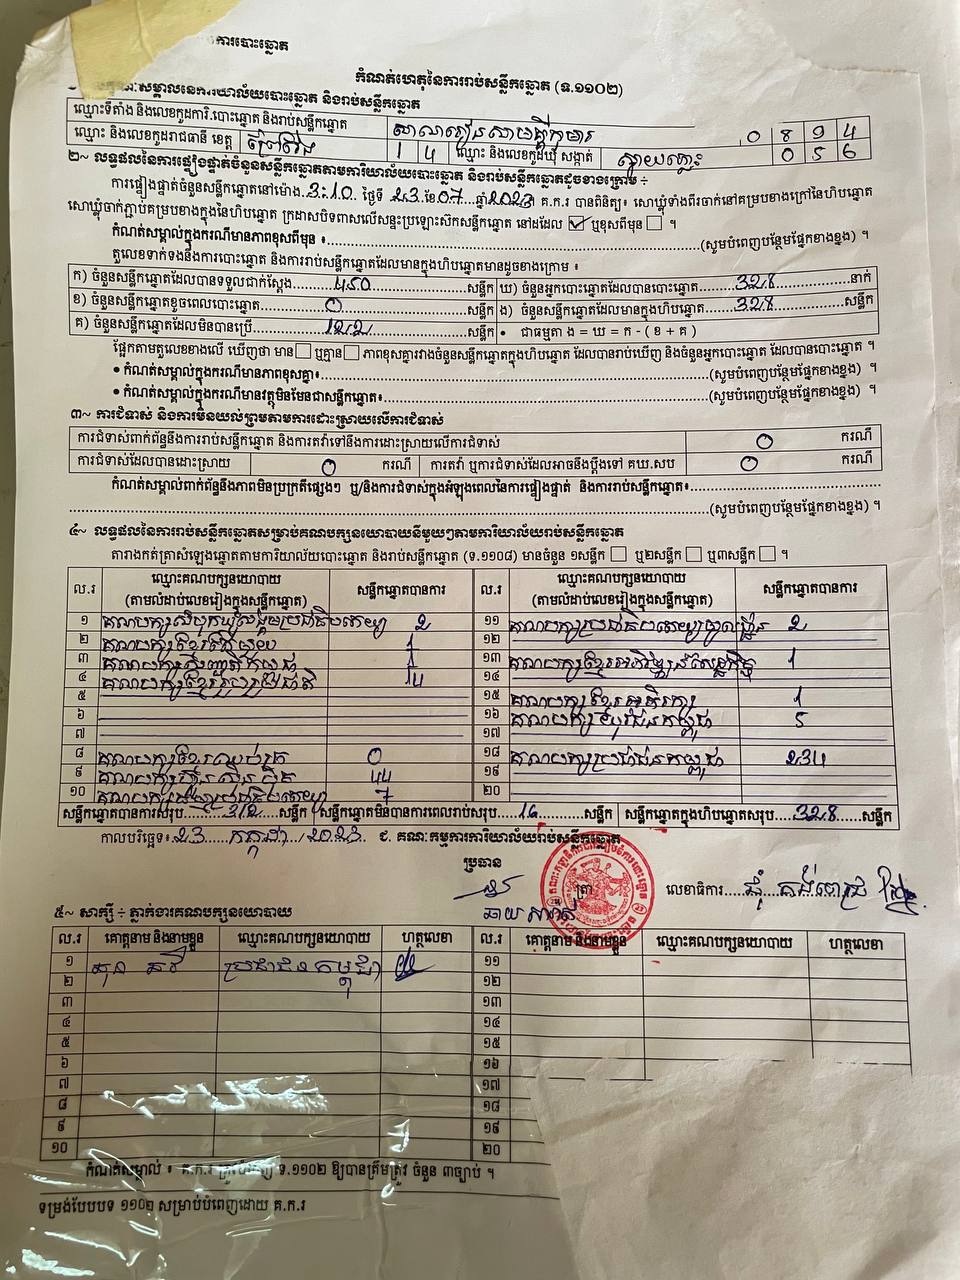 ការបោះឆ្នោត
កំណត់ហេតុនៃការរាប់សន្លឹកឆ្នោត (ទ.១១០២)
សម្គាល់នៃការិយាល័យបោះឆ្នោត និងរាប់សន្លឹកឆ្នោត
ឈ្មោះទីតាំង និងលេខកូដការិ.បោះឆ្នោត និងរាប់សន្លឹកឆ្នោត សាលារៀនសាមគ្គីកុមារ 0 8 9 4
ឈ្មោះ និងលេខកូដរាជធានី ខេត្ត ព្រៃវែង 1 4 ឈ្មោះ និងលេខកូដឃុំ សង្កាត់ ស្វាយ 0 5 6
២~ លទ្ធផលនៃការផ្ទៀងផ្ទាត់ចំនួនសន្លឹកឆ្នោតតាមការិយាល័យបោះឆ្នោត និងរាប់សន្លឹកឆ្នោតដូចខាងក្រោម ÷
ការផ្ទៀងផ្ទាត់ចំនួនសន្លឹកឆ្នោតនៅម៉ោង 3:10 ថ្ងៃទី 23 ខែ 07 ឆ្នាំ 2023 គ.ក.រ បានពិនិត្យ៖ សោឃ្លុំទាំងពីរចាក់នៅគម្របខាងក្រៅនៃហិបឆ្នោត
សោឃ្លុំចាក់ភ្ជាប់គម្របខាងក្នុងនៃហិបឆ្នោត ក្រដាសបិទពាសលើសន្ទះប្រឡោះស៊កសន្លឹកឆ្នោត នៅដដែល ☑ ឬខុសពីមុន ☐ ។
កំណត់សម្គាល់ក្នុងករណីមានភាពខុសពីមុន ៖ (សូមបំពេញបន្ថែមផ្នែកខាងខ្នង) ។
តួលេខទាក់ទងនឹងការបោះឆ្នោត និងការរាប់សន្លឹកឆ្នោតដែលមានក្នុងហិបឆ្នោតមានដូចខាងក្រោម ៖
ក) ចំនួនសន្លឹកឆ្នោតដែលបានទទួលជាក់ស្តែង 450 សន្លឹក ឃ) ចំនួនអ្នកបោះឆ្នោតដែលបានបោះឆ្នោត 328 នាក់
ខ) ចំនួនសន្លឹកឆ្នោតខូចពេលបោះឆ្នោត 0 សន្លឹក ង) ចំនួនសន្លឹកឆ្នោតដែលមានក្នុងហិបឆ្នោត 328 សន្លឹក
គ) ចំនួនសន្លឹកឆ្នោតដែលមិនបានប្រើ 122 សន្លឹក • ជាធម្មតា ង = ឃ = ក - ( ខ + គ )
ផ្អែកតាមតួលេខខាងលើ ឃើញថា មាន ☐ ឬគ្មាន ☐ ភាពខុសគ្នារវាងចំនួនសន្លឹកឆ្នោតក្នុងហិបឆ្នោត ដែលបានរាប់ឃើញ និងចំនួនអ្នកបោះឆ្នោត ដែលបានបោះឆ្នោត ។
• កំណត់សម្គាល់ក្នុងករណីមានភាពខុសគ្នា៖ (សូមបំពេញបន្ថែមផ្នែកខាងខ្នង) ។
• កំណត់សម្គាល់ក្នុងករណីមានវត្ថុមិនមែនជាសន្លឹកឆ្នោត៖ (សូមបំពេញបន្ថែមផ្នែកខាងខ្នង) ។
៣~ ការជំទាស់ និងការមិនយល់ព្រមតាមការដោះស្រាយលើការជំទាស់
ការជំទាស់ពាក់ព័ន្ធនឹងការរាប់សន្លឹកឆ្នោត និងការតវ៉ាទៅនឹងការដោះស្រាយលើការជំទាស់ 0 ករណី
ការជំទាស់ដែលបានដោះស្រាយ 0 ករណី ការតវ៉ា ឬការជំទាស់ដែលអាចនឹងប្តឹងទៅ គឃ.សប 0 ករណី
កំណត់សម្គាល់ពាក់ព័ន្ធនឹងភាពមិនប្រក្រតីផ្សេងៗ ឬ/និងការជំទាស់ក្នុងអំឡុងពេលនៃការផ្ទៀងផ្ទាត់ និងការរាប់សន្លឹកឆ្នោត៖
(សូមបំពេញបន្ថែមផ្នែកខាងខ្នង) ។
៤~ លទ្ធផលនៃការរាប់សន្លឹកឆ្នោតសម្រាប់គណបក្សនយោបាយនីមួយៗតាមការិយាល័យរាប់សន្លឹកឆ្នោត
តារាងកត់ត្រាសំឡេងឆ្នោតតាមការិយាល័យបោះឆ្នោត និងរាប់សន្លឹកឆ្នោត (ទ.១១០៨) មានចំនួន ១សន្លឹក ☐ ឬ២សន្លឹក ☐ ឬ៣សន្លឹក ☐ ។
ល.រ ឈ្មោះគណបក្សនយោបាយ (តាមលំដាប់លេខរៀងក្នុងសន្លឹកឆ្នោត) សន្លឹកឆ្នោតបានការ ល.រ ឈ្មោះគណបក្សនយោបាយ (តាមលំដាប់លេខរៀងក្នុងសន្លឹកឆ្នោត) សន្លឹកឆ្នោតបានការ
១ គណបក្សសំបុកឃ្មុំសង្គមប្រជាធិបតេយ្យ 2 ១១ គណបក្សប្រជាធិបតេយ្យមូលដ្ឋាន 2
២ គណបក្សខ្មែរ 1 ១២
៣ គណបក្ស 1 ១៣ គណបក្សខ្មែរអភិវឌ្ឍន៍សេដ្ឋកិច្ច 1
៤ គណបក្សខ្មែររួបរួមជាតិ 14
៥ ១៥ គណបក្សខ្មែរអភិរក្ស 1
៦ ១៦ គណបក្សកម្ពុជា 5
៧ ១៧
៨ គណបក្សខ្មែរឈប់ក្រ 0 ១៨ គណបក្សប្រជាជនកម្ពុជា 234
៩ គណបក្សហ៊្វុនស៊ិនប៉ិច 44 ១៩
១០ គណបក្សប្រជាធិបតេយ្យ 7 ២០
សន្លឹកឆ្នោតបានការសរុប 312 សន្លឹក សន្លឹកឆ្នោតមិនបានការពេលរាប់សរុប 16 សន្លឹក សន្លឹកឆ្នោតក្នុងហិបឆ្នោតសរុប 328 សន្លឹក
កាលបរិច្ឆេទ៖ 23 កក្កដា / 2023 ជ. គណៈកម្មការការិយាល័យរាប់សន្លឹកឆ្នោត
ប្រធាន
ត្រា លេខាធិការ
ឆាយ សារ៉ាត់
៥~ សាក្សី ÷ ភ្នាក់ងារគណបក្សនយោបាយ
ល.រ គោត្តនាម និងនាមខ្លួន ឈ្មោះគណបក្សនយោបាយ ហត្ថលេខា ល.រ គោត្តនាម និងនាមខ្លួន ឈ្មោះគណបក្សនយោបាយ ហត្ថលេខា
១ ប្រជាជនកម្ពុជា ១១
២ ១២
៣ ១៣
៤ ១៤
៥ ១៥
៦ ១៦
៧ ១៧
៨ ១៨
៩ ១៩
១០ ២០
កំណត់សម្គាល់ ៖ គ.ក.រ ត្រូវបំពេញ ទ.១១០២ ឱ្យបានត្រឹមត្រូវ ចំនួន ៣ច្បាប់ ។
ទម្រង់បែបបទ ១១០២ សម្រាប់បំពេញដោយ គ.ក.រ